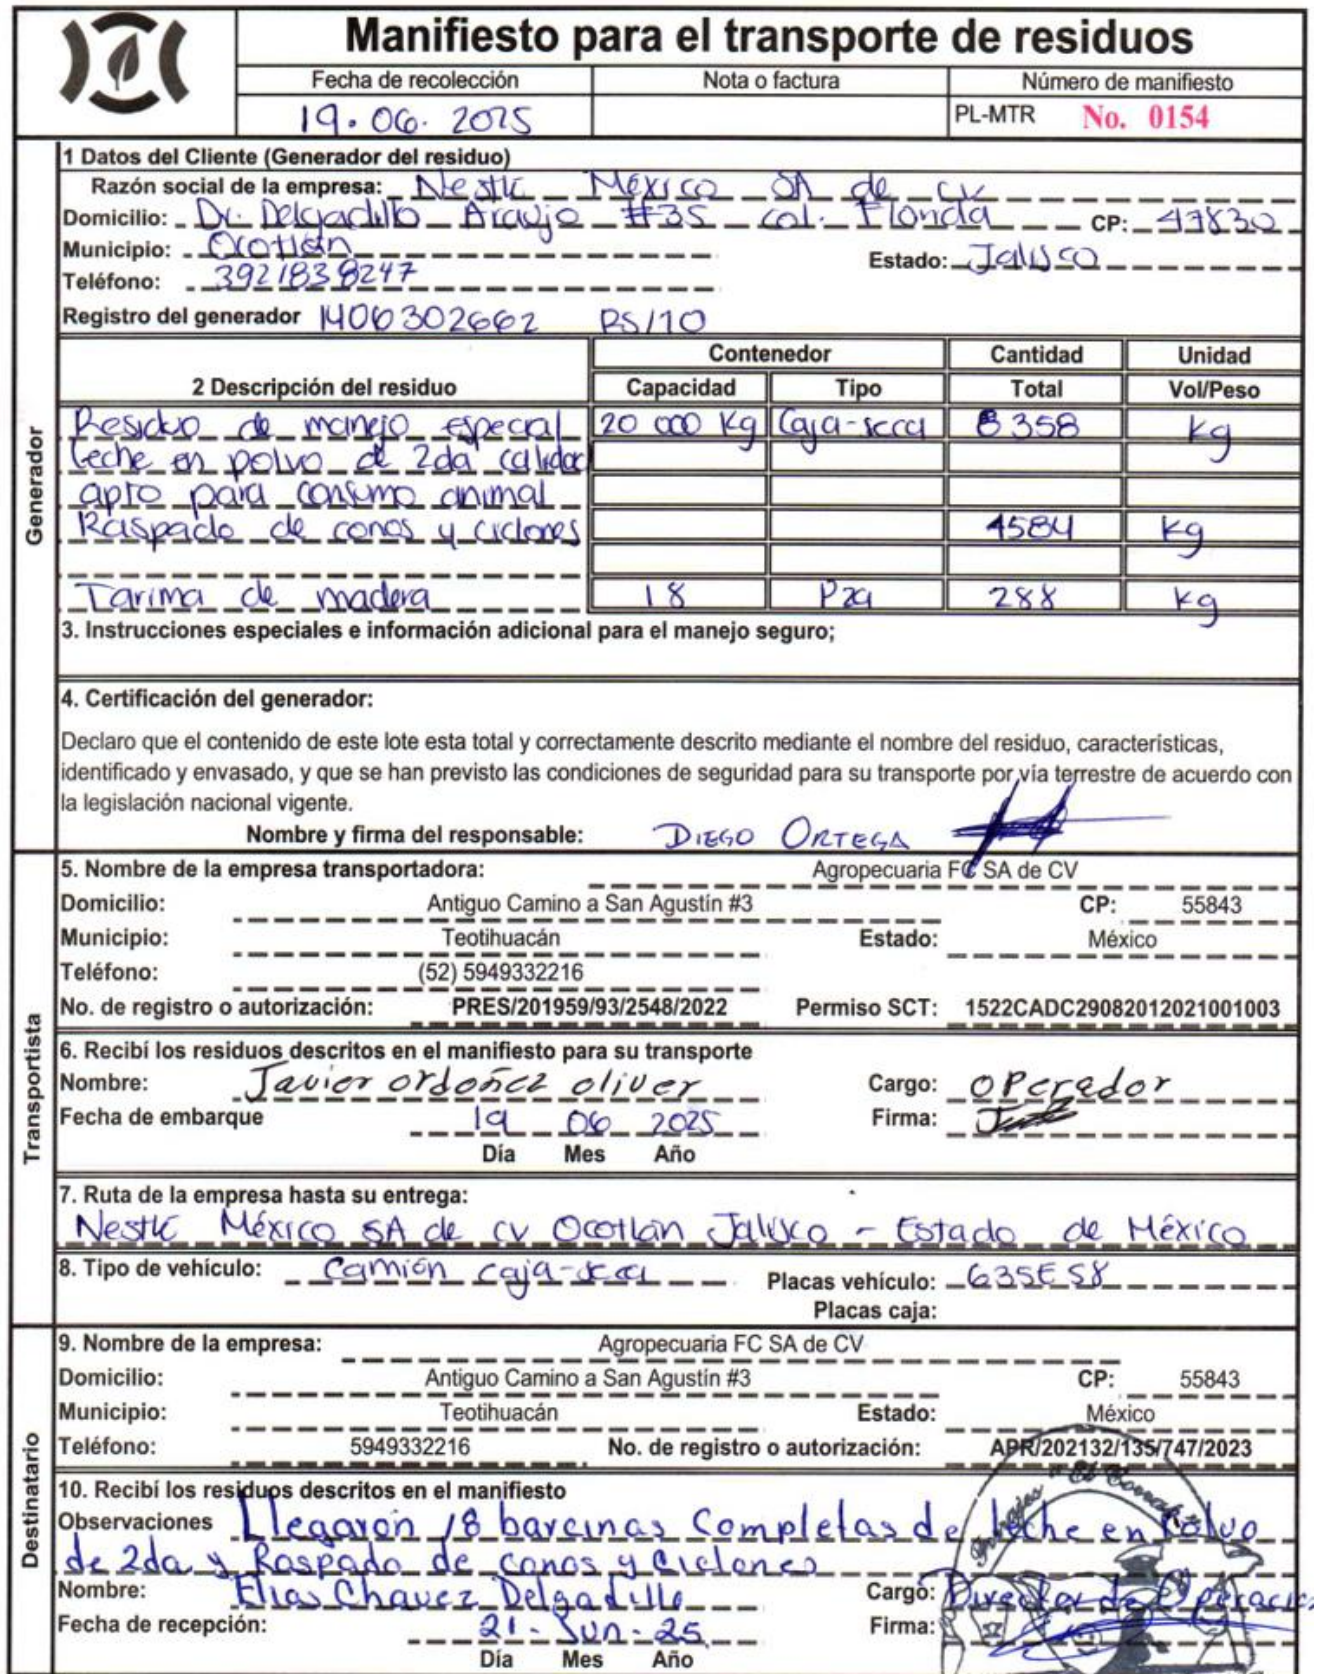 Manifiesto para el transporte de residuos
Fecha de recolección Nota o factura Número de manifiesto
19.06.2025 PL-MTR No. 0154
Generador
1 Datos del Cliente (Generador del residuo)
Razón social de la empresa: Nestlé México SA de CV
Domicilio: Dr. Delgadillo Araujo #35 col. Florida CP: 47830
Municipio: Ocotlán
Estado: Jalisco
Teléfono: 3921838247
Registro del generador 1406302662 RS/10
2 Descripción del residuo Contenedor Cantidad Unidad
Capacidad Tipo Total Vol/Peso
Residuo de manejo especial 20 000 Kg Caja-seca 8358 Kg
leche en polvo de 2da calidad
apto para consumo animal
Raspado de conos y ciclones 4584 Kg
Tarima de madera 18 Pza 288 Kg
3. Instrucciones especiales e información adicional para el manejo seguro;
4. Certificación del generador:
Declaro que el contenido de este lote esta total y correctamente descrito mediante el nombre del residuo, características,
identificado y envasado, y que se han previsto las condiciones de seguridad para su transporte por vía terrestre de acuerdo con
la legislación nacional vigente.
Nombre y firma del responsable: DIEGO ORTEGA
Transportista
5. Nombre de la empresa transportadora: Agropecuaria FC SA de CV
Domicilio: Antiguo Camino a San Agustín #3 CP: 55843
Municipio: Teotihuacán Estado: México
Teléfono: (52) 5949332216
No. de registro o autorización: PRES/201959/93/2548/2022 Permiso SCT: 1522CADC29082012021001003
6. Recibí los residuos descritos en el manifiesto para su transporte
Nombre: Javier ordoñez oliver Cargo: Operador
Fecha de embarque 19 06 2025 Firma:
Día Mes Año
7. Ruta de la empresa hasta su entrega:
Nestlé México SA de CV Ocotlán Jalisco - Estado de México
8. Tipo de vehículo: Camión caja-seca Placas vehículo: 635ES8
Placas caja:
Destinatario
9. Nombre de la empresa: Agropecuaria FC SA de CV
Domicilio: Antiguo Camino a San Agustín #3 CP: 55843
Municipio: Teotihuacán Estado: México
Teléfono: 5949332216 No. de registro o autorización: APR/202132/135/747/2023
10. Recibí los residuos descritos en el manifiesto
Observaciones Llegaron 18 barcinas Completas de leche en Polvo
de 2da y Raspado de conos y Ciclones
Nombre: Elias Chavez Delgadillo Cargo: Director de Operacio
Fecha de recepción: 21-Jun-25 Firma:
Día Mes Año